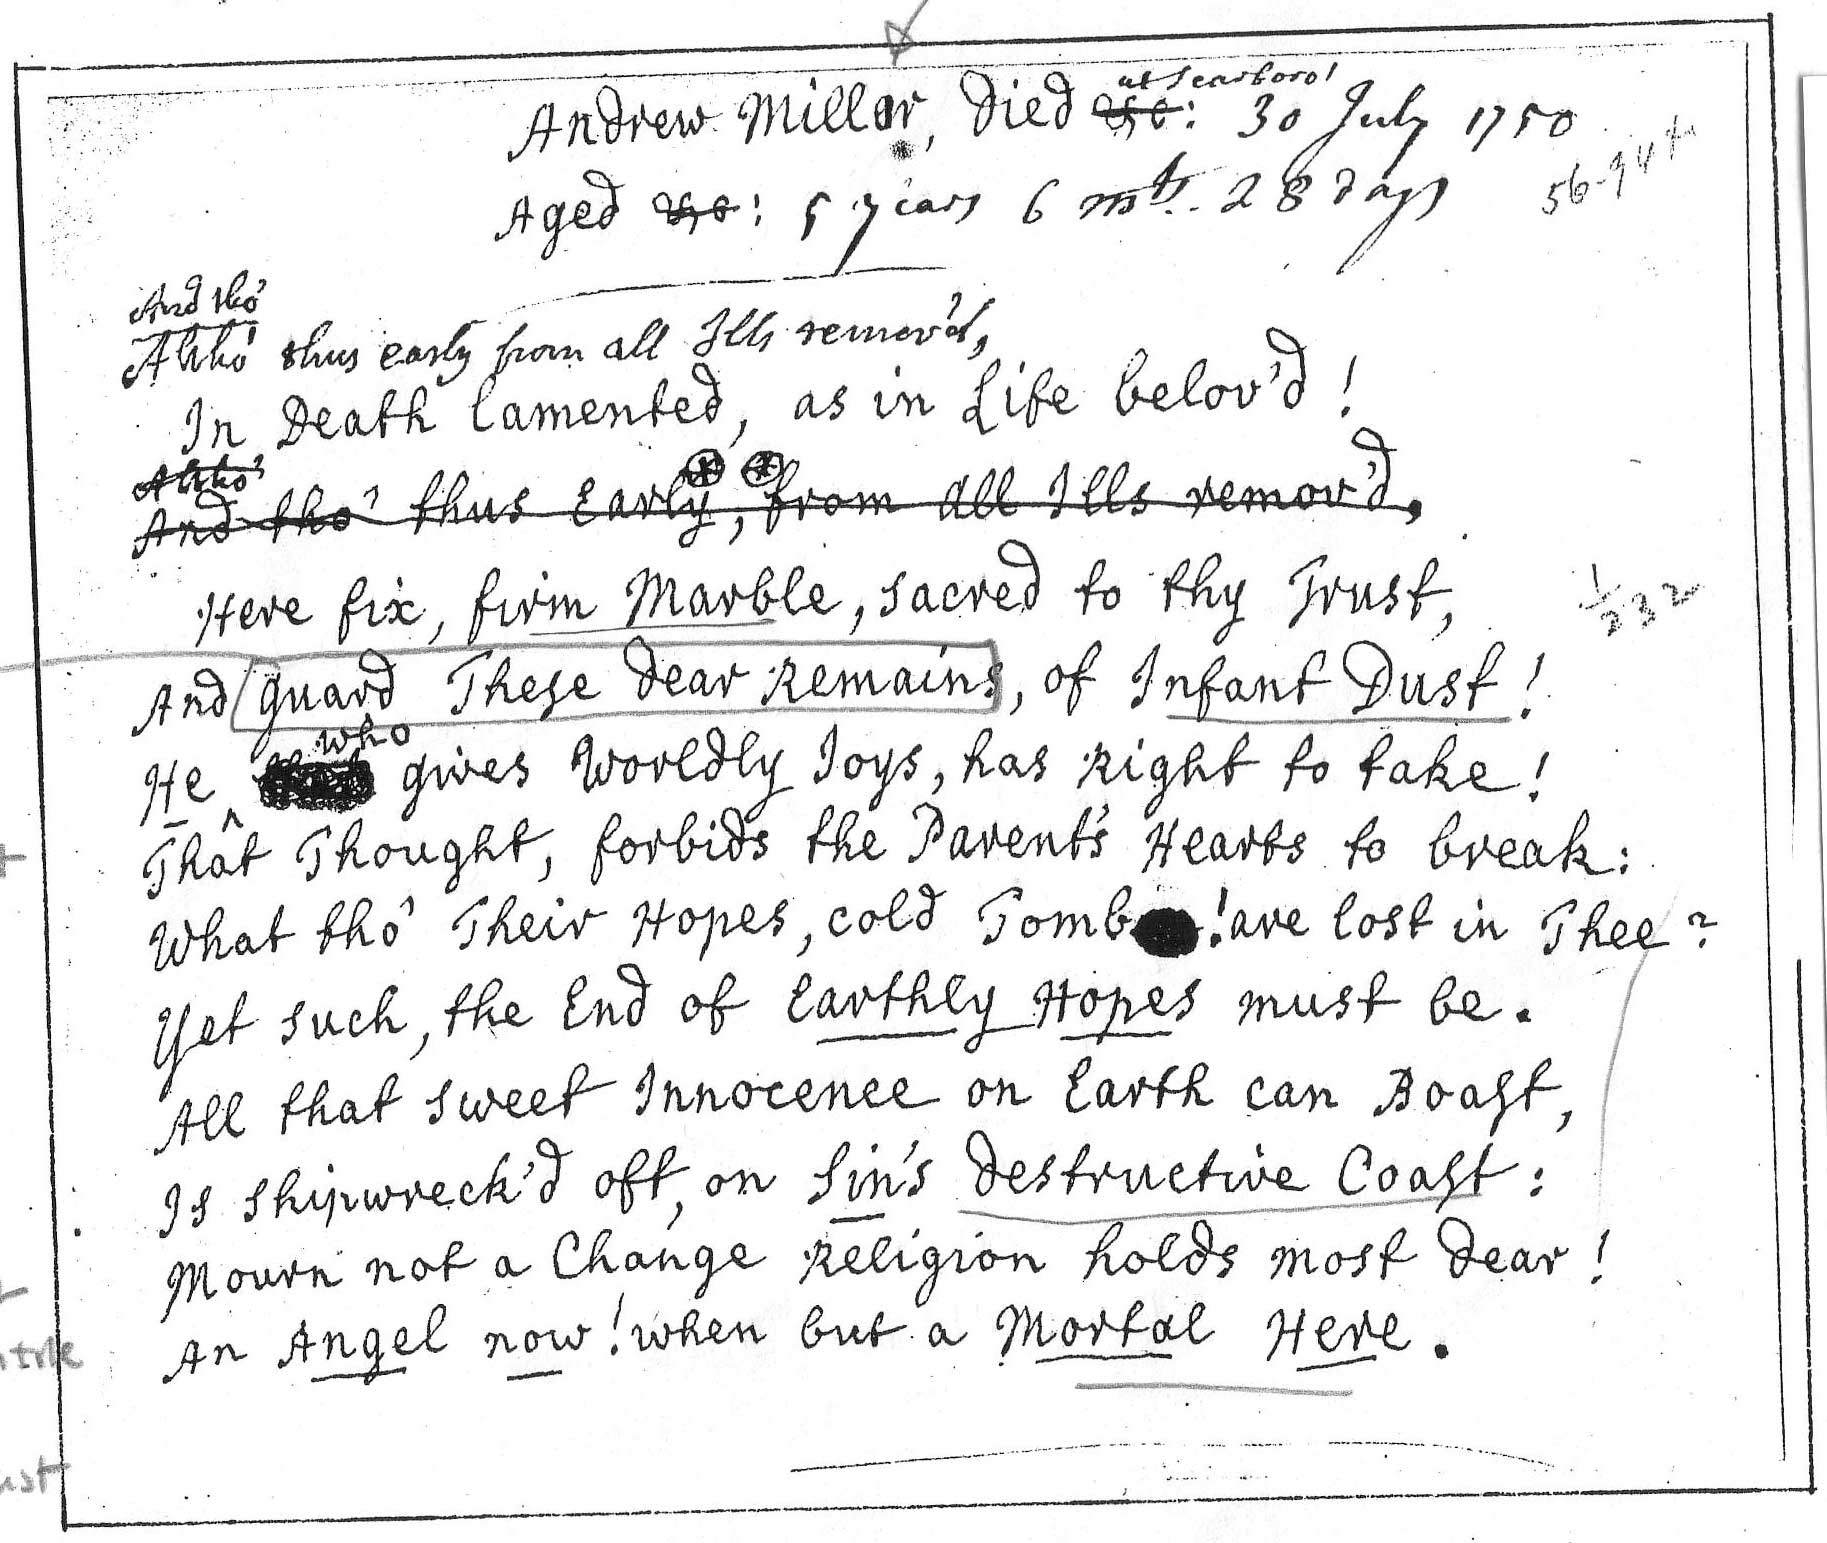 at Scarboro'
Andrew Millar, Died &c: 30 July 1750
Aged &c: 5 years 6 mths. 28 days
56-94
And tho'
Altho' thus early from all Ills remov'd,
In Death lamented, as in Life belov'd!
Altho'
And tho' thus Early, from all Ills remov'd,
Here fix, firm Marble, sacred to thy Trust,
1/232
And guard These dear Remains, of Infant Dust!
who
He gives Worldly Joys, has Right to take!
That Thought, forbids the Parent's Hearts to break:
What tho' Their Hopes, cold Tomb! are lost in Thee?
Yet such, the End of Earthly Hopes must be.
All that sweet Innocence on Earth can Boast,
Is shipwreck'd oft, on Sin's destructive Coast:
Mourn not a Change Religion holds most dear!
An Angel now! when but a Mortal Here.
ust